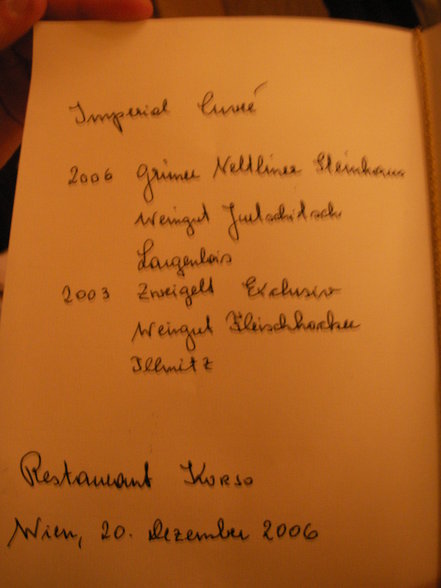 Imperial Cuveé
2006 Grüner Veltliner Steinhaus
Weingut Jurtschitsch
Langenlois
2003 Zweigelt Exclusiv
Weingut Fleischhacker
Illmitz
Restaurant Korso
Wien, 20. Dezember 2006